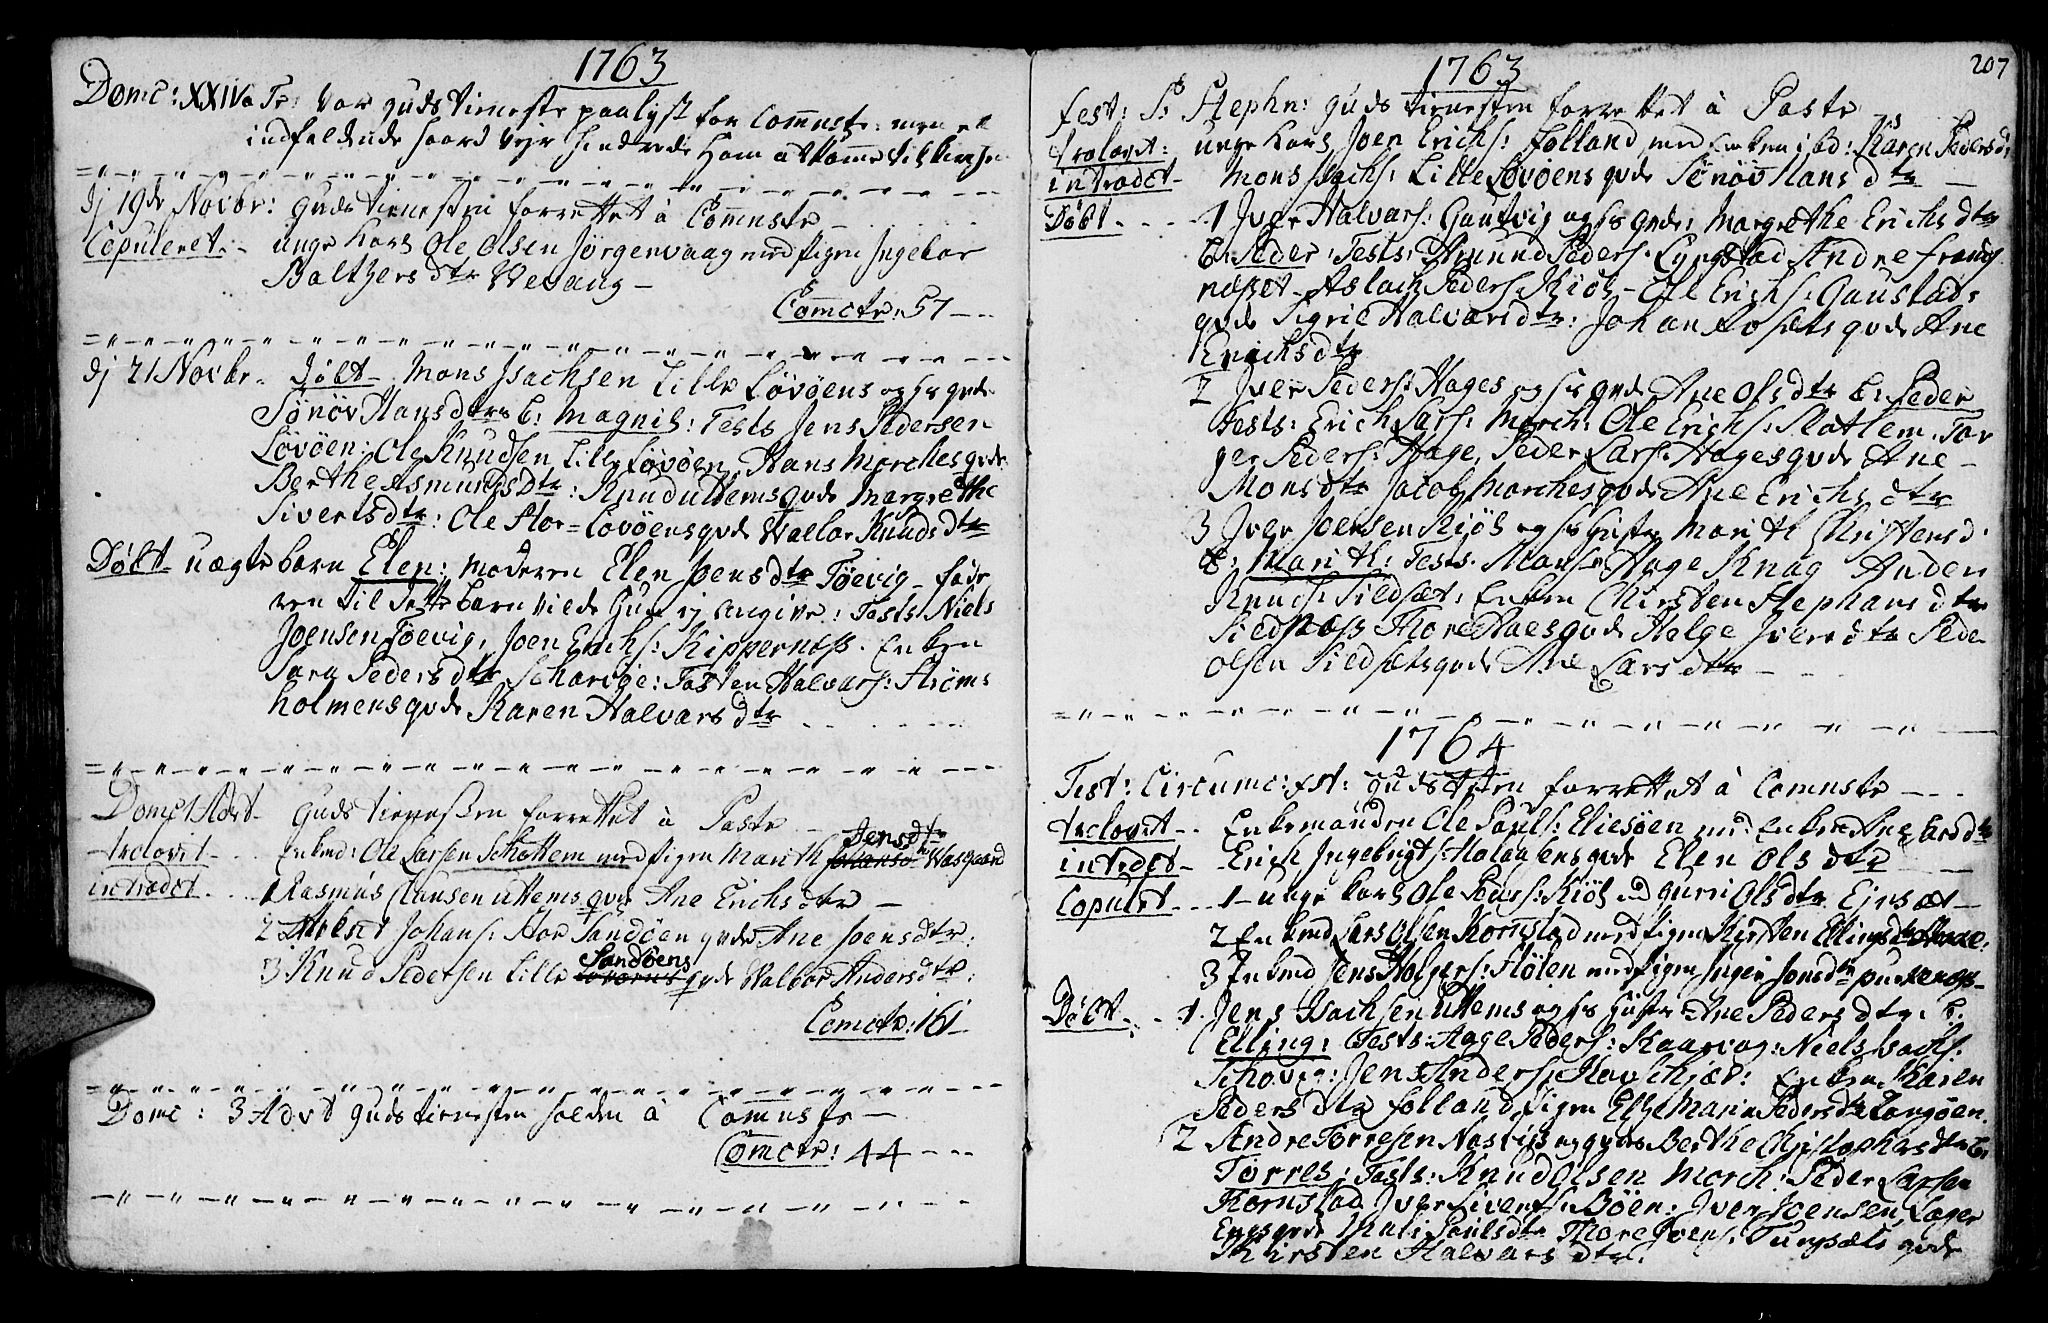 1763
Domc: XXIV a Tr: var guds tieneste paalyst for Comnste: men et
indfaldende haard vejr hindrede ham at komme til kirken
dj 19de Novbr: guds tienesten forrettet à Comnste
Copuleret unge karl Ole Olsen Jörgenvaag med pigen Ingebor
Baltzers dtr Wevang
Comctr: 57
dj 21 Novbr. döbt Mons Isachsen Lille Lövöens og hs qvde
Sönöv Hansdtrs b: Magnil: Tests Jens Pedersen
Lövöen: Ole Knudsen Lille Lövöen, Hans Morches qvde
Berthe Asmunds dtr: Knud Uttems qvde Margrethe
Siverts dtr: Ole Stor=Lovöens qvde Wallor Knuds dtr
Döbt uægte barn Elen: moderen Elen Joens dtr Töevig fade
ren til dette barn vilde hun ej angive: Tests Niels
Joensen Töevig, Joen Erichs: Kippernæss. Enken
Sara Peders dtr Scharöe: Tosten Halvars: Ströms
holmens qvde Karen Halvars dtr
Domc 1 Advt Guds tienesten forrettet à Paste
trolovet Enkmd: Ole Larsen Schottem med pigen Marith Jensdtr Wasgaard
introdct 1 Rasmus Clausen Uttems qvde Ane Erichs dtr
2 Johans: Stor Sandöen qvde Ane Joens dtr:
3 Knud Pedersen Lille Sandöens qvde Walbor Anders dtr:
Comctr: 161
Domc: 3 Advt Guds tienesten holden à Comnste
Comctr: 44
1763
207
fest: S: Stephn: guds tienesten forrettet à Paste
trolovet: unge karl Joen Erichs: Folland med Enken ibd: Karen Pedersd:
introdct Mons Isachs: Lille Lövöens qvde Sönöv Hans dtr
Döbt 1 Iver Halvars: Gautvig og hs qvde: Margrethe Erichs dtr
b: Peder: Tests: Amund Peders: Lyngstad Andre
næsset Aslach Peders: Kiöl Ole Erichs: Gaustad:
qvde Sigrie Halvars dtr: Johan Rosæts qvde Ane
Erichs dtr
2 Iver Peders: Hages og hs qvde Ane Ols dtr b: Peder
Tests: Erich Lars: Morch: Ole Erichs: Slatlem. Tor
ger Peders: Hage, Peder Lars: Hages qvde Ane
Mons dtr Jacob Morches qvde Ane Erichs dtr
3 Iver Joensen Kiöl og hs hustr Marith Christensd:
b: Marith: Tests. Mons: Hage Knag Anders
Knuds: Sildsæt: Enken Chirsten Stephans dtr
Sildnæss Thore Haes qvde Helge Ivers dtr Peder
Olsen Sildsæts qvde Ane Lars dtr
1764
Fest: Circumc: xst: guds tsten forrettet à Comnste
trolovet Enkemanden Ole Pouls: Eliesöen med Enken Ane Larsdtr
introdct Erich Ingebrigts: qvde Elen Ols dtr
Copulret 1 unge karl Ole Peders: Kiöl med Gurri Ols dtr Ejesæt
2 Enkmd Lars Olsen Kornstad med pigen Kirsten Ellings dtr
3 Enkmd Jens Holgers: Stölen med pigen Inger Jonsdtr
Döbt 1. Jens Isachsen Uttems og hs hustr Ane Peders dtr. b.
Elling: Tests: Aage Peders: Kaarvog: Niels Isachs:
Schovig: Jens Anders: Havschjær: Enken Karen
Peders dtr Folland pigen Else Maria Peders dtr Langöen.
2 Andre Torresen Nasvig og qvdes Berthe Christophers dtr b:
Torres: Tests: Knud Olsen Morch: Peder Larsen
Kornstad Iver Siverts: Böen: Iver Joensen
qvde Mali Pouls dtr Thore Ivers: qvde
Kirsten Halvars dtr.